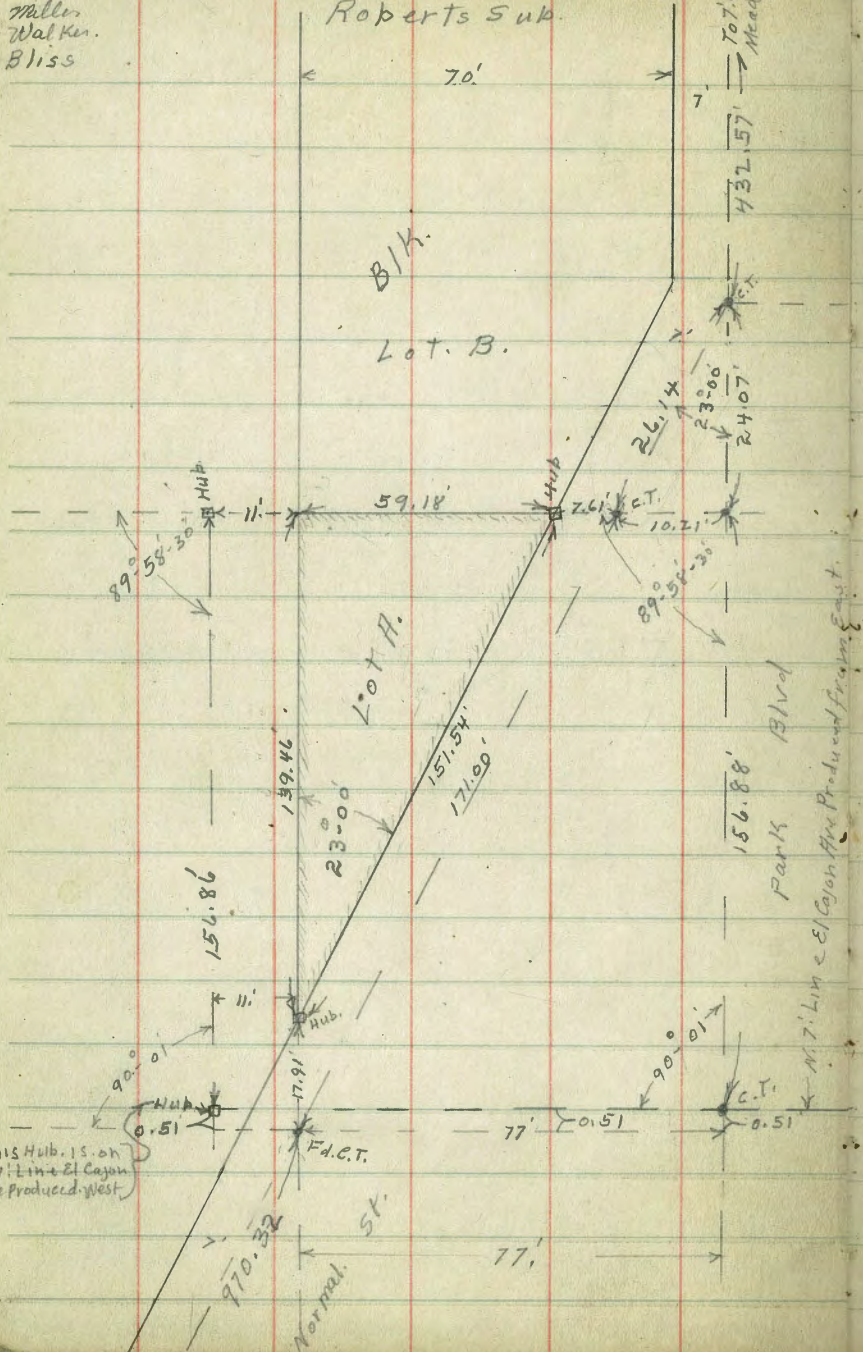 Miller
Walker.
Bliss
Roberts Sub.
70'
7'
To 7'
432.57'
Blk.
C.T.
Lot. B.
7'
26.14
23°-00'
24.07'
Hub
11'
59.18'
Hub
7.61'
C.T.
10.21'
89°-58'-30"
89°-58'-30"
Lot A.
139.46'
23°-00'
151.54'
171.00'
156.88'
Park Blvd
N. 7' Line El Cajon Ave Produced from East.
156.86'
11'
Hub.
90°-01'
90°-01'
17.91'
Hub
0.51
C.T.
0.51
0.51
77'
Fd. C.T.
is Hub. is on
7' Line El Cajon
e Produced West
7'
970.32
Normal. St.
77'